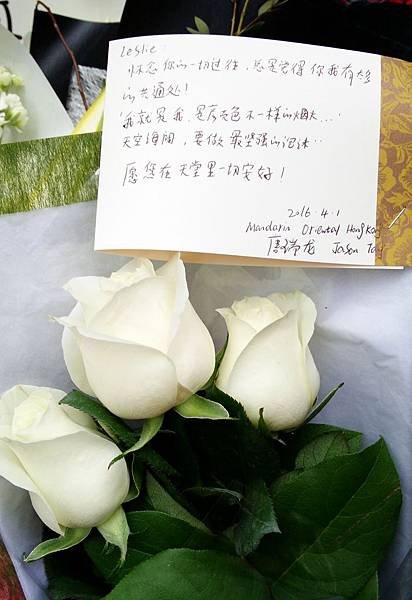 Leslie:
怀念你的一切过往，总是觉得你我有太多
的共通处！
'我就是我，是颜色不一样的烟火...'
天空海阔，要做最坚强的泡沫..
愿您在天堂里一切安好！
2016.4.1
Mandarin Oriental HongKong
唐瑞龙 Jason